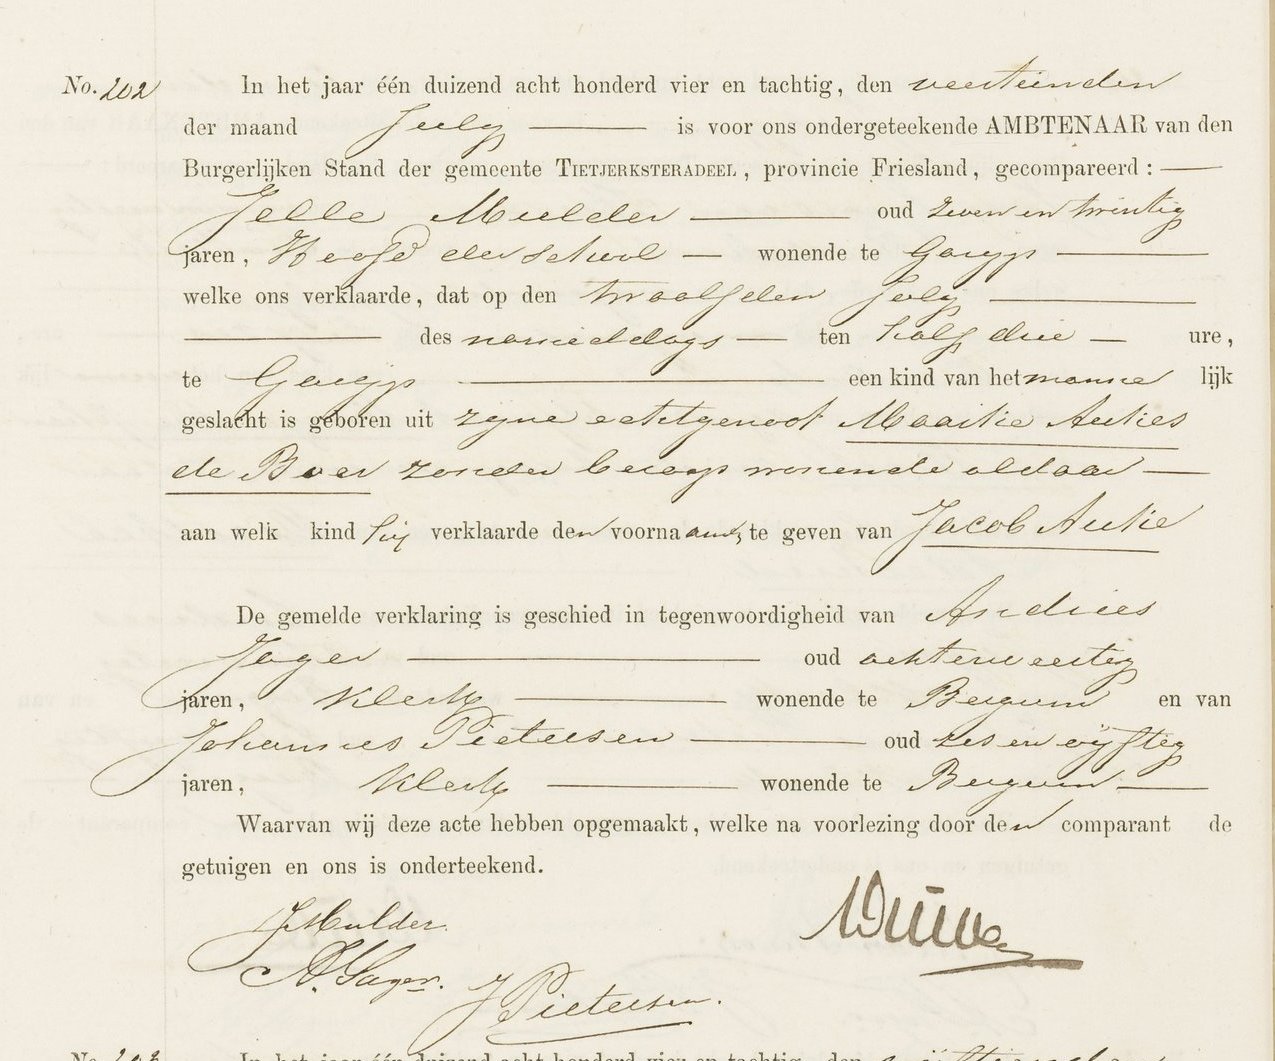 No. 202 In het jaar één duizend acht honderd vier en tachtig, den veertienden
der maand July is voor ons ondergeteekende AMBTENAAR van den
Burgerlijken Stand der gemeente TIETJERKSTERADEEL, provincie Friesland, gecompareerd:
Jelle Mulder oud zeven en twintig
jaren, Hoofd der school wonende te Garyp
welke ons verklaarde, dat op den twaalfden July
des namiddags ten half drie ure,
te Garyp een kind van het manne lijk
geslacht is geboren uit zyne echtgenoot Maaike Aukes
de Boer zonder beroep wonende aldaar
aan welk kind hij verklaarde den voornaam te geven van Jacob Auke
De gemelde verklaring is geschied in tegenwoordigheid van Andries
Jager oud achtenveertig
jaren, klerk wonende te Bergum en van
Johannes Pietersen oud zes en vijftig
jaren, klerk wonende te Bergum
Waarvan wij deze acte hebben opgemaakt, welke na voorlezing door den comparant de
getuigen en ons is onderteekend.
J Mulder.
A. Jager.
J Pietersen.
No. 203 In het jaar één duizend acht honderd vier en tachtig, den